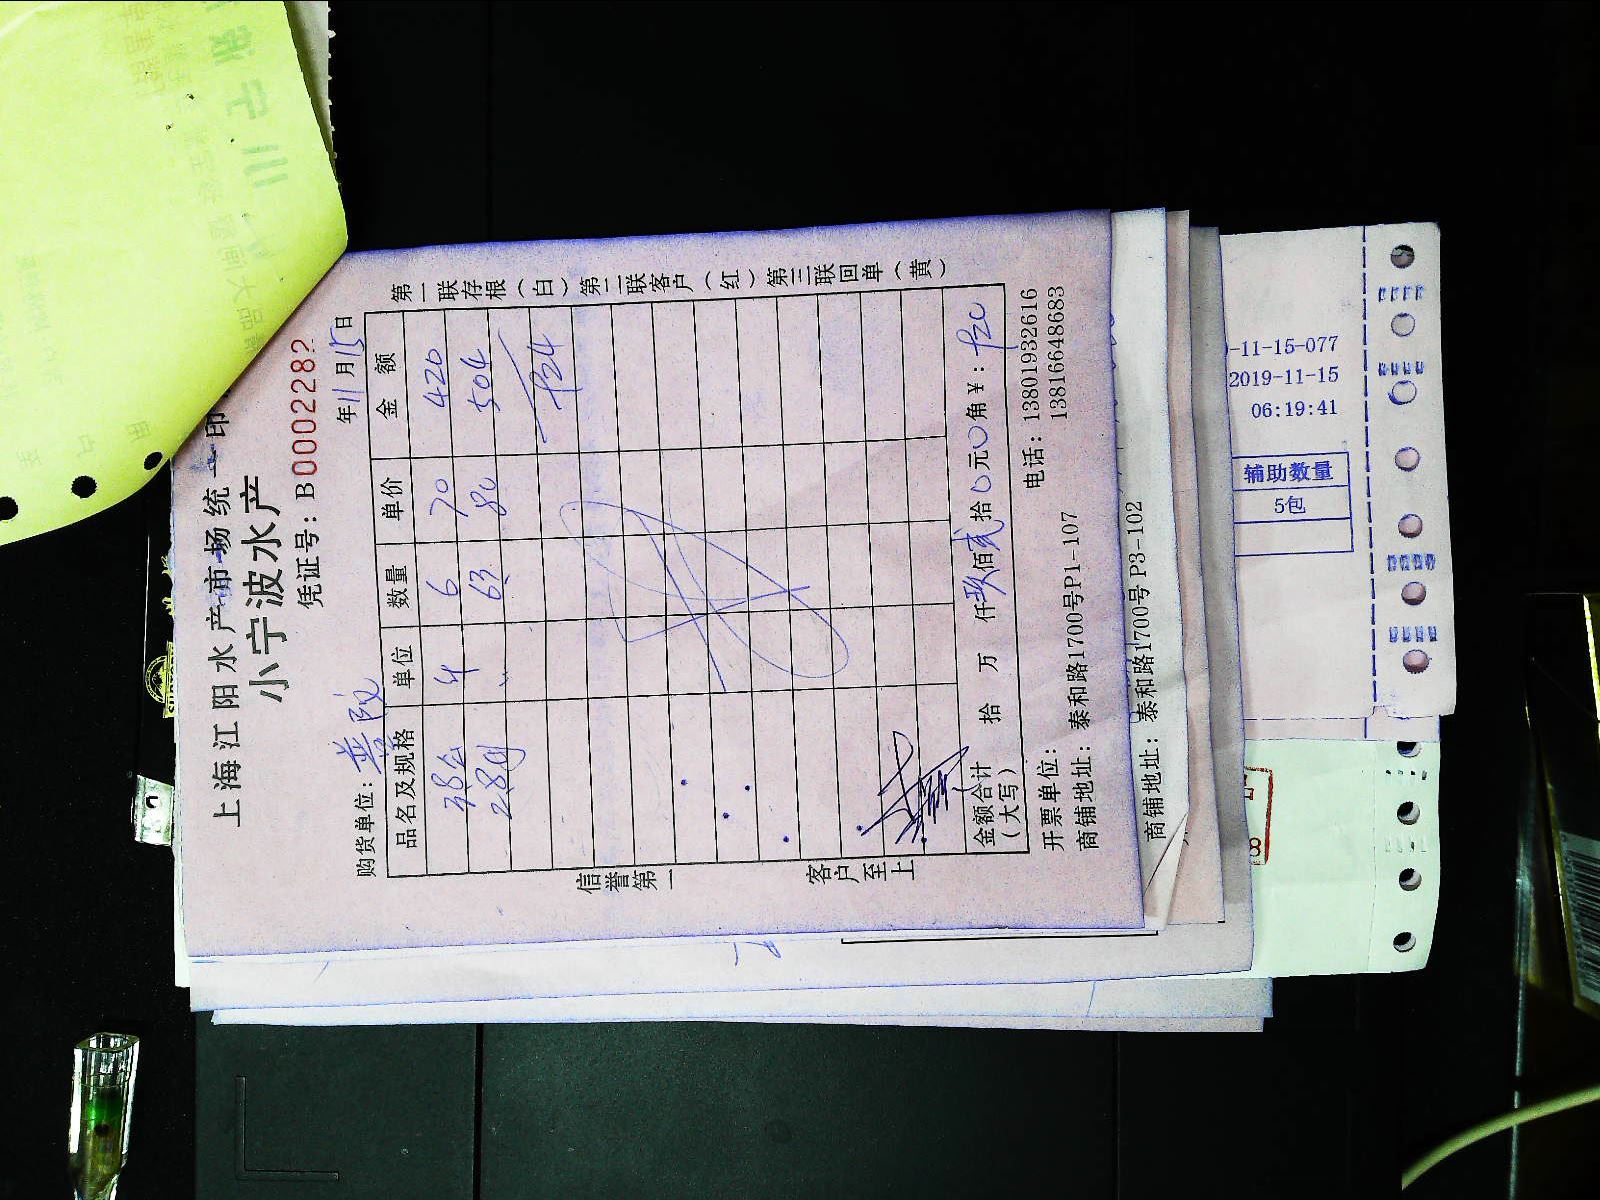 上海江阳水产市场统一印
小宁波水产
凭证号：B0002282
购货单位：
年11月15日
品名及规格 单位 数量 单价 金额
6 70 420
63 80 504
924
信誉第一
客户至上
金额合计（大写） 拾 万 仟玖佰贰拾0元0角¥：920
第一联存根（白）第二联客户（红）第三联回单（黄）
开票单位：
电话：13801932616
13816648683
商铺地址：泰和路1700号P1-107
商铺地址：泰和路1700号P3-102
-11-15-077
2019-11-15
06:19:41
辅助数量
5包